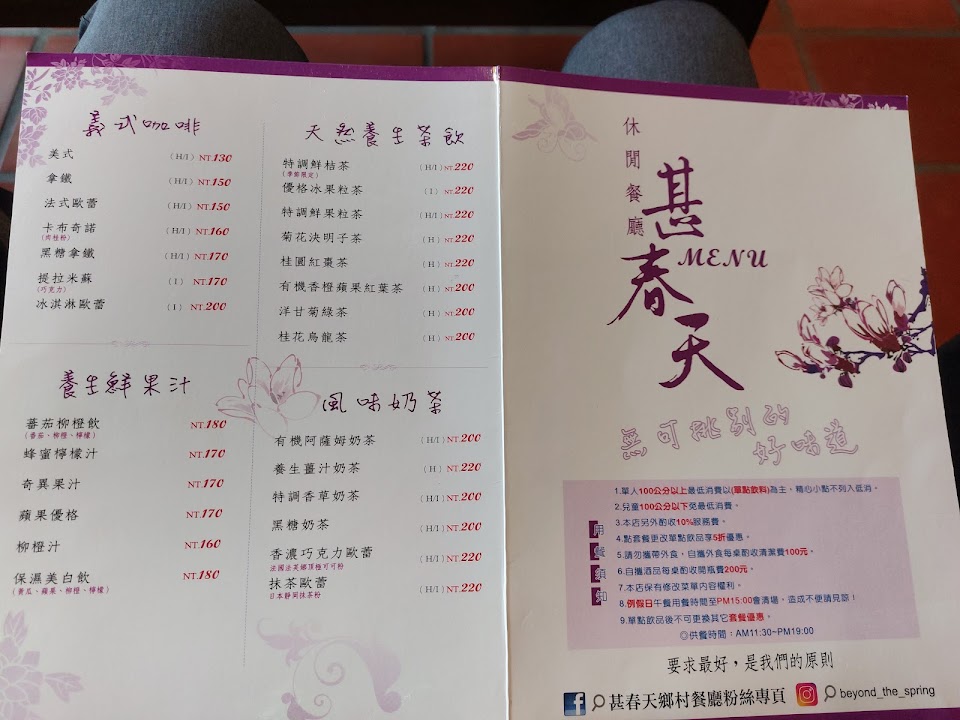 義式咖啡
美式 (H/I) NT.130
拿鐵 (H/I) NT.150
法式歐蕾 (H/I) NT.150
卡布奇諾 (H/I) NT.160
(肉桂粉)
黑糖拿鐵 (H/I) NT.170
提拉米蘇 (I) NT.170
(巧克力)
冰淇淋歐蕾 (I) NT.200
養生鮮果汁
蕃茄柳橙飲 NT.180
(番茄、柳橙、檸檬)
蜂蜜檸檬汁 NT.170
奇異果汁 NT.170
蘋果優格 NT.170
柳橙汁 NT.160
保濕美白飲 NT.180
(黃瓜、蘋果、柳橙、檸檬)
天然養生茶飲
特調鮮桔茶 (H/I) NT.220
(季節限定)
優格冰果粒茶 (I) NT.220
特調鮮果粒茶 (H/I) NT.220
菊花決明子茶 (H) NT.220
桂圓紅棗茶 (H) NT.220
有機香橙蘋果紅葉茶 (H) NT.200
洋甘菊綠茶 (H) NT.200
桂花烏龍茶 (H) NT.200
風味奶茶
有機阿薩姆奶茶 (H/I) NT.200
養生薑汁奶茶 (H) NT.220
特調香草奶茶 (H/I) NT.200
黑糖奶茶 (H/I) NT.200
香濃巧克力歐蕾 (H/I) NT.220
法國法芙娜頂極可可粉
抹茶歐蕾 (H/I) NT.220
日本靜岡抹茶粉
休閒餐廳
甚春天
MENU
無可挑剔的
好味道
用餐須知
1.單人100公分以上最低消費以(單點飲料)為主，精心小點不列入低消。
2.兒童100公分以下免最低消費。
3.本店另外酌收10%服務費。
4.點套餐更改單點飲品享5折優惠。
5.請勿攜帶外食，自攜外食每桌酌收清潔費100元。
6.自攜酒品每桌酌收開瓶費200元。
7.本店保有修改菜單內容權利。
8.例假日午餐用餐時間至PM15:00會清場，造成不便請見諒！
9.單點飲品後不可更換其它套餐優惠。
◎供餐時間：AM11:30~PM19:00
要求最好，是我們的原則
甚春天鄉村餐廳粉絲專頁 beyond_the_spring